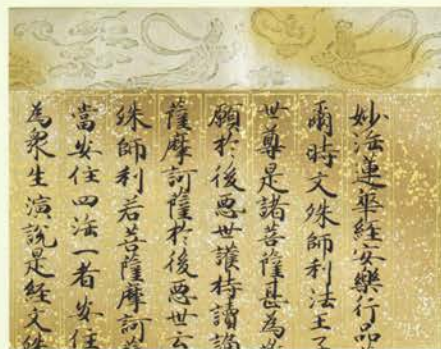 妙法蓮華経安樂行品
爾時文殊師利法王子
世尊是諸菩薩甚為
願於後悪世護持讀誦
薩摩訶薩於後悪世云
殊師利若菩薩摩訶薩
當安住四法一者安住
為衆生演説是経文殊